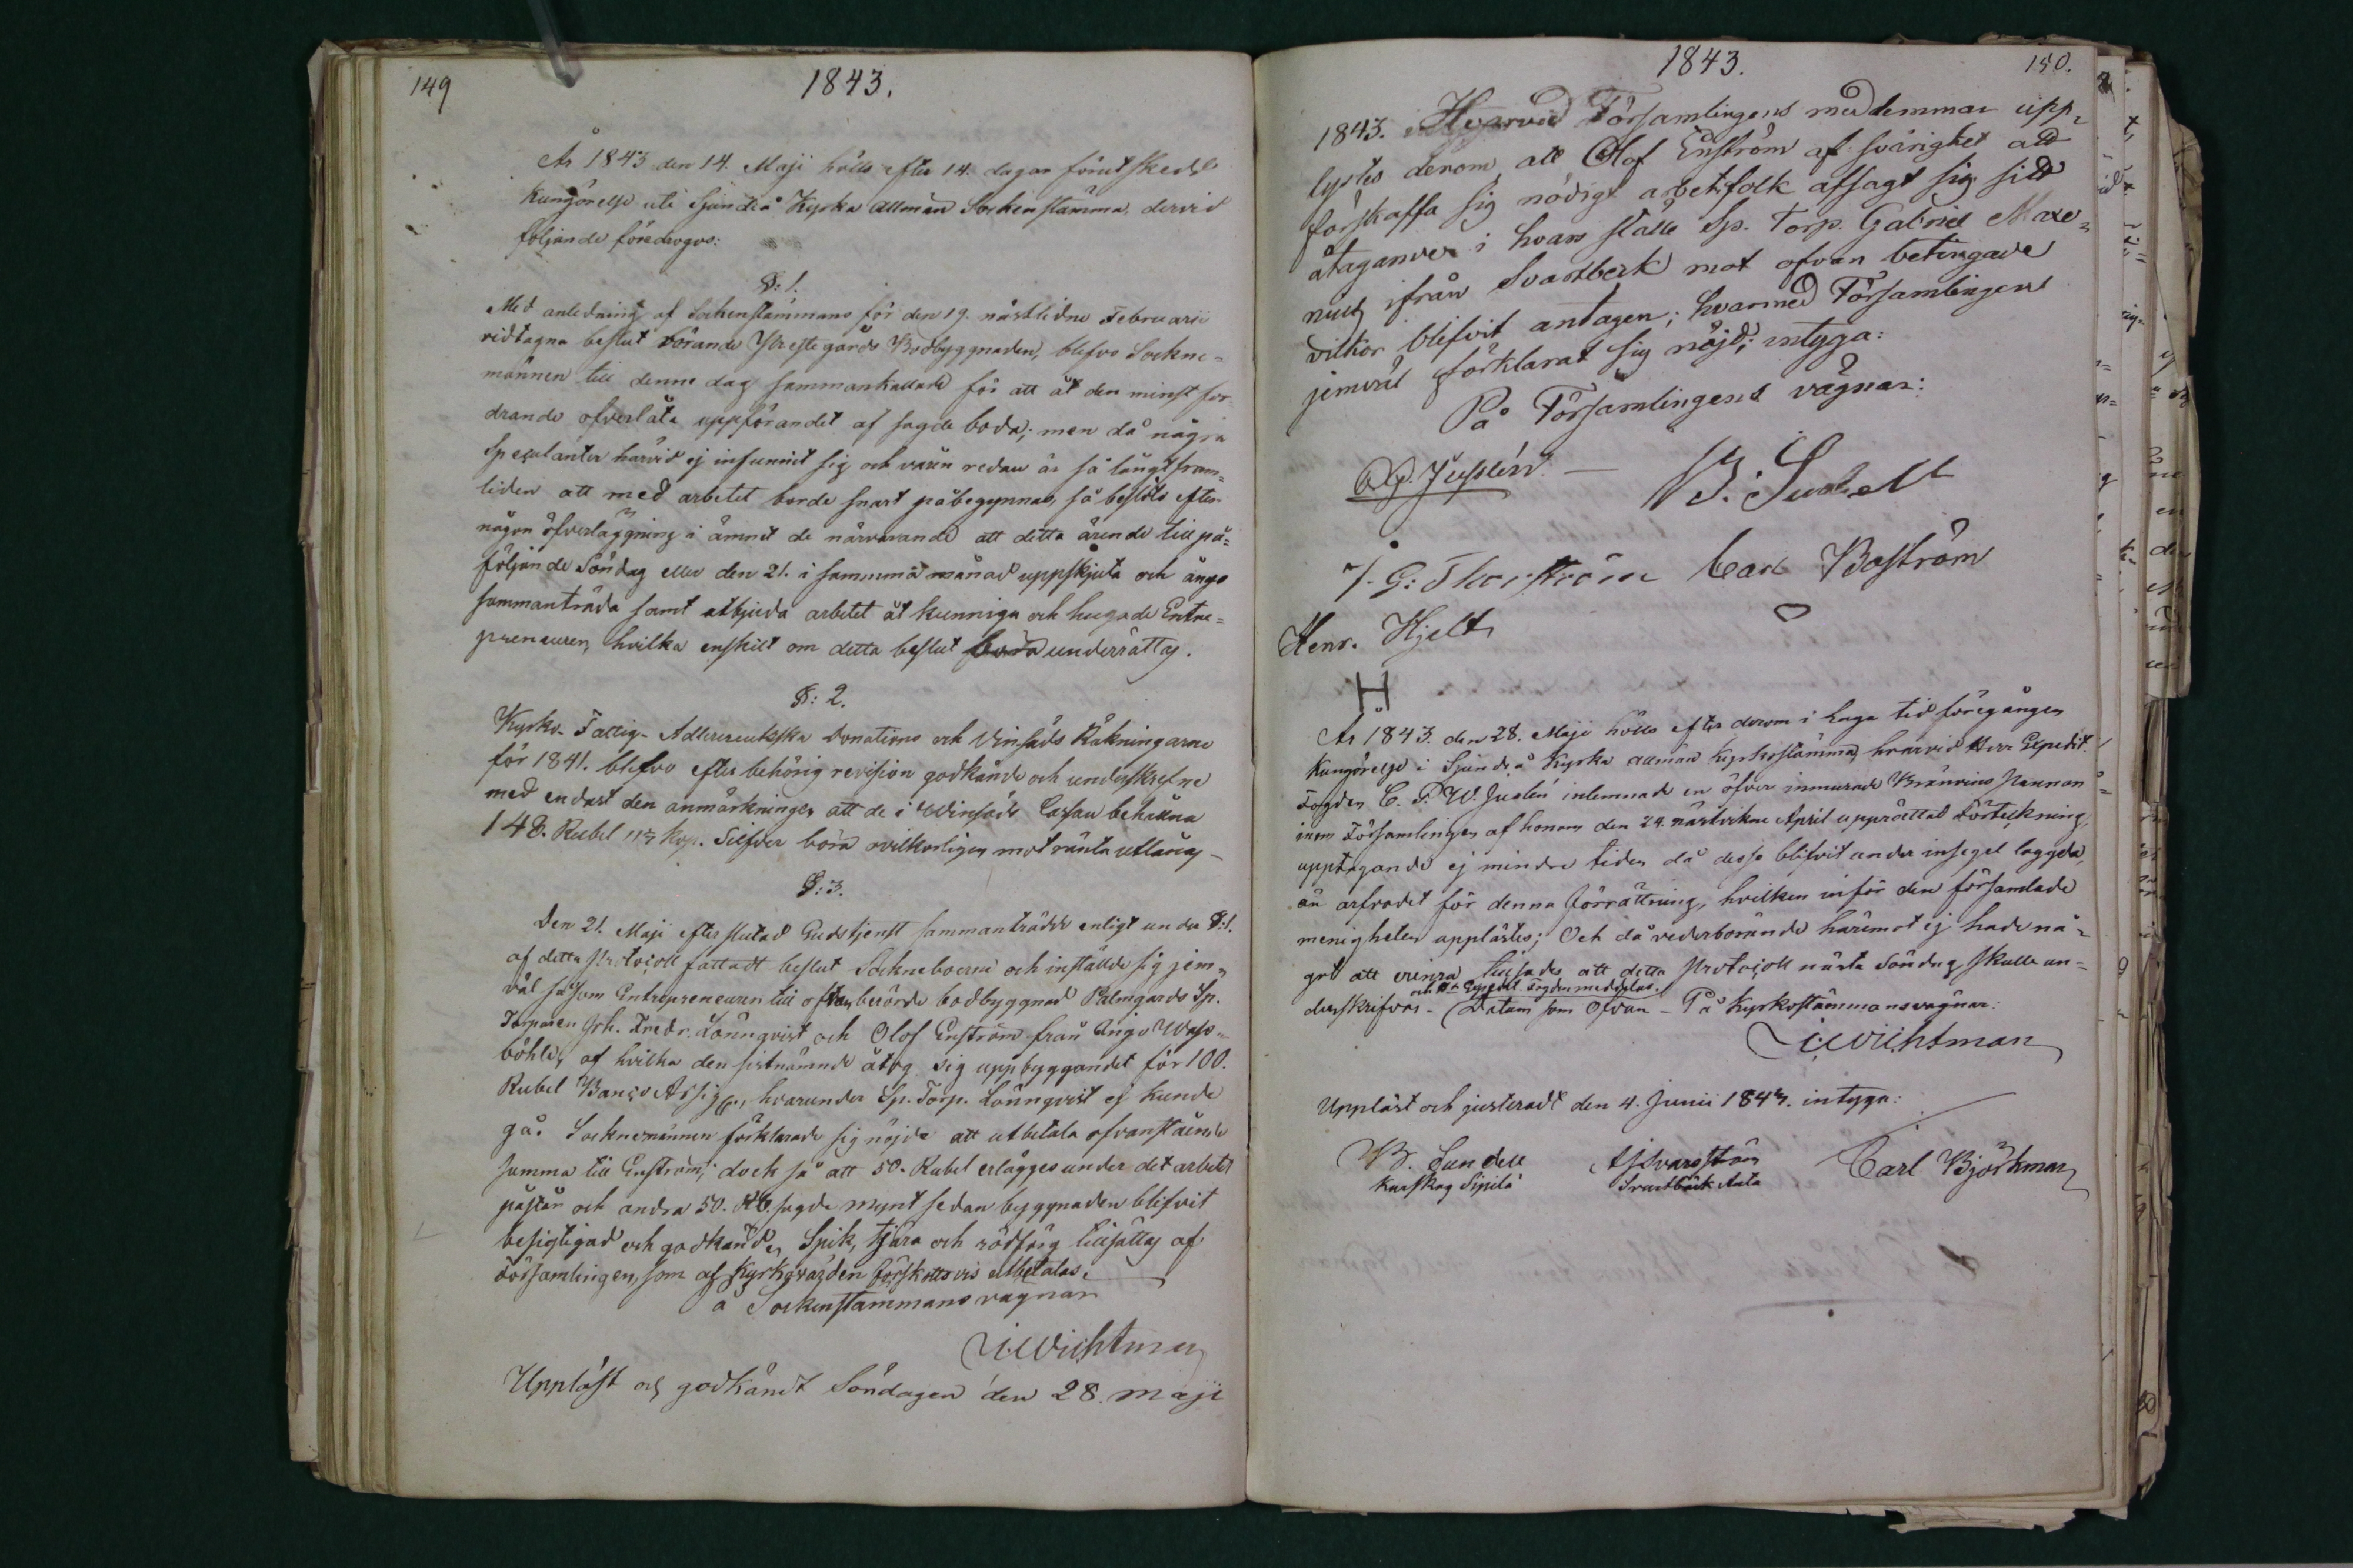 149
1843.
År 1843 den 14. Maji hölls efter 14. dagar förut skedd
Kungörelse uti Sjundeå Kyrka allmän Sockenstämma, dervid
följande föredrogos:
§: 1.
Med anledning af Sockenstämmans för den 19. nästledne Februarii
vidtagna beslut rörande Prestegårds Bodbyggnaden, blefvo Sockne=
männen till denne dag sammankallade för att åt den minst for
drande ofverlåta uppförandet af sagde boda; men då några
Spekulanter härvid ej infunnit sig och våren redan är så långt fram=
liden att med arbetet borde snart påbegynnas, så beslöts efter
någon öfverläggning i ämnet de närvarande att detta ärende till på=
följande Söndag eller den 21. i samma månad uppskjuta och ånyo
sammanträda samt utbjuda arbetet åt kunniga och hugade Entre=
preneurer, hvilka enskilt om detta beslut underrättas.
§: 2.
Kyrko- Fattig- Adlercreutzska Donations och Vinsäds Räkningarne
för 1841. blefvo efter behörig revision godkände och underskrefne
med endast den anmärkningen att de i Vinsäds Cassan behållna
148. Rubel kop. Silfver böra ovilkorligen mot ränta utlånas -
§: 3.
Den 21. Maji efter slutad Gudstjenst sammanträdde enligt under §:1.
af detta Protocoll fattadt beslut Sockneboerne och inställde sig jem=
väl såsom Entrepreneurer till oftanberörde bodbyggnad Palmgårds Sp.
Torparen Joh. Fredr. Lönnqvist och Olof Enström från Ingo Wass=
böhle, af hvilka den sistnämnde åtog sig uppbyggandet för 100.
Rubel Banco Assign., hvarunder Sp. Torp. Lönnqvist ej kunde
gå. Socknemännen förklarade sig nöjde att utbetala ofvanstående
summa till Enström; dock så att 50. Rubel erlägges under det arbetet
påstår och andra 50. Rb. sagde mynt sedan byggnaden blifvit
besigtigad och godkänd. Spik, tjära och rödfärg tillsättas af
Församlingen, som af Kyrkovärden förskottsvis utbetalas.
å Sockenstämmans vägnar
Wichtman
Uppläst och godkändt Söndagen den 28. Maji
1843.
150.
1843. Hvarvid Församlingens medlemmar upp=
lystes derom, att Olof Enström af svårighet att
förskaffa sig nödigt arbetsfolk afsagt sig sitt
åtagande i hvars ställe Sp. Torp. Gabriel Maxe=
nius ifrån Svartbeck mot ofvan betingade
vilkor blifvit antagen; hvarmed Församlingen
jemväl förklarat sig nöjd; intyga:
På Församlingens vägnar:
B. Sundell
J. G: Thorström Carl Boström
Henr. Hjelt
H
År 1843. den 28. Maji hölls efter derom i laga tid föregången
Kungörelse i Sjundeå Kyrka allmän Kyrkostämma, hvarvid Herr Expedit.
Fogden C. F. W. Juslén inlemnade en öfver inmurade Brännvins Pannor
inom Församlingen af honom den 24. nästvikne April upprättad Förteckning,
upptagande ej mindre tiden då desse blifvit under insegel laggda,
än arfvodet för denna förrättning, hvilken inför den församlade
menigheten upplästes; Och då vederbörande häremot ej hade nå=
got att erinra tillsades att detta Protocoll nästa Söndag skulle un=
och Hr Expedit. Fogden meddelas.
derskrifvas - Datum som Ofvan - På Kyrkostämmans vägnar:
Wichtman
Uppläst och justeradt den 4. Junii 1843. intyga:
B. Sundell
Carl Björkman
Kuskog Sipilä
Svartbäck